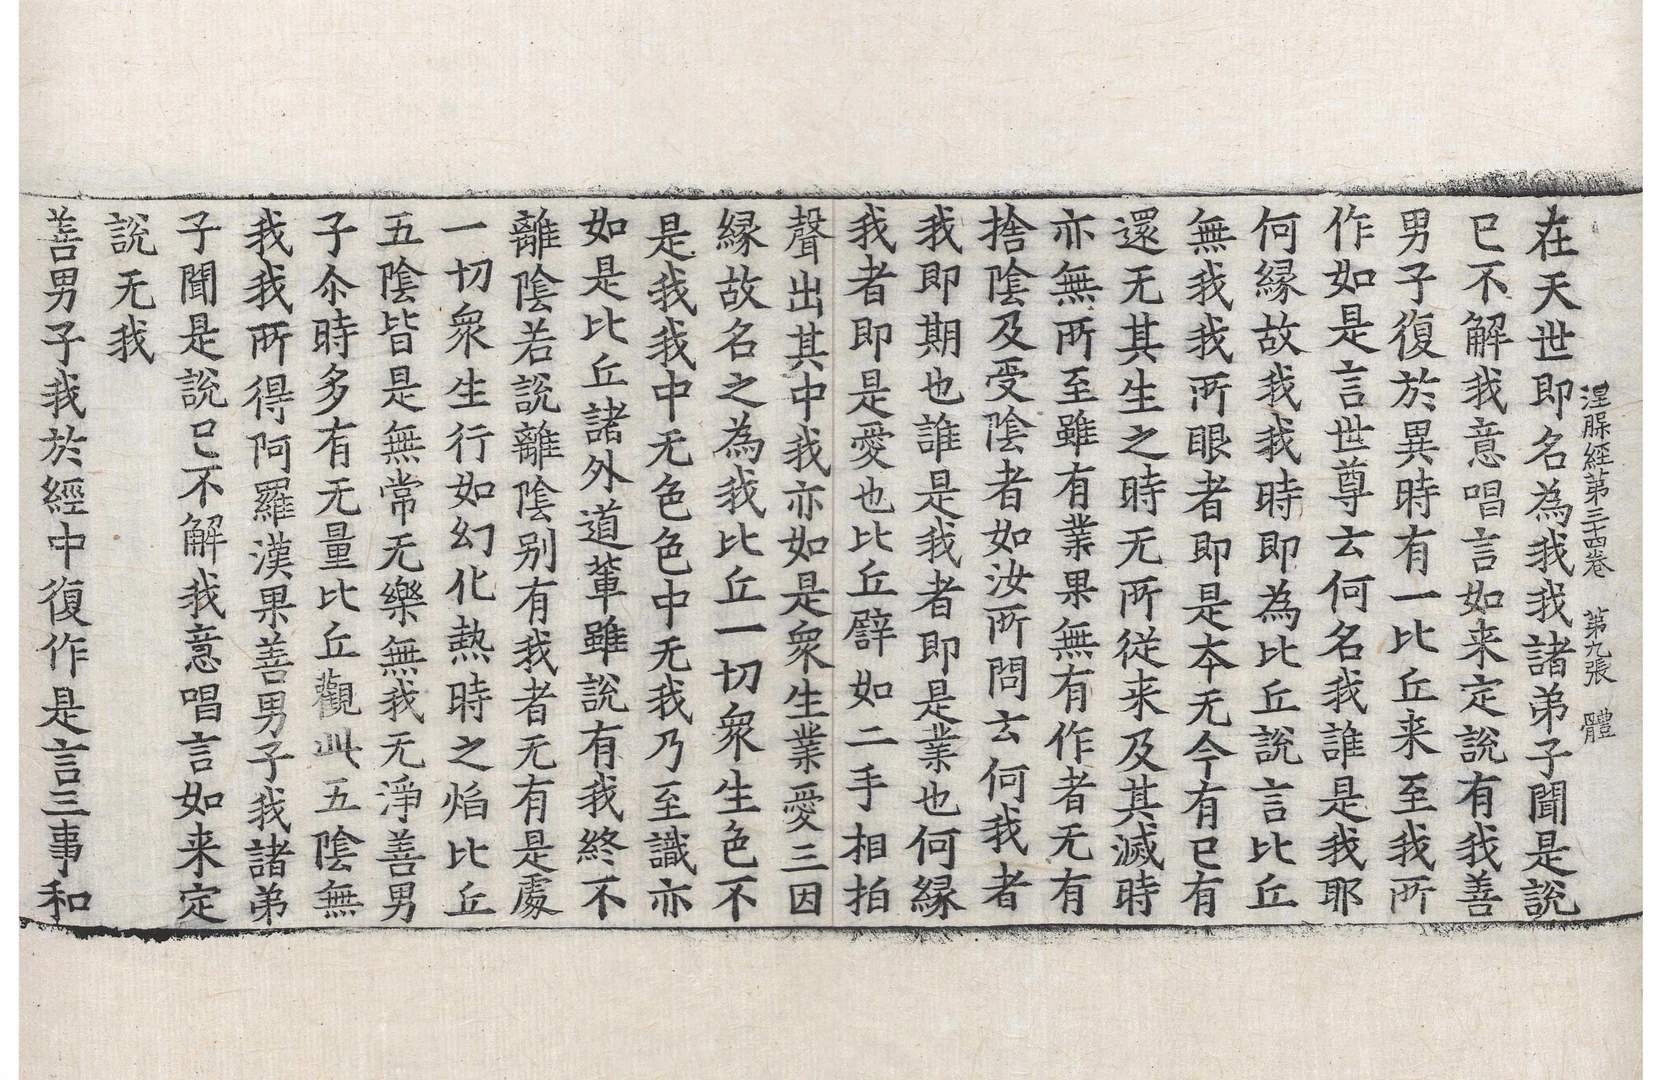 涅槃經第三十四卷 第九張 體
在天世即名為我我諸弟子聞是說
已不解我意唱言如来定說有我善
男子復於異時有一比丘来至我所
作如是言世尊云何名我誰是我耶
何縁故我我時即為比丘說言比丘
無我我所眼者即是夲无今有已有
還无其生之時无所從来及其滅時
亦無所至雖有業果無有作者无有
捨陰及受陰者如汝所問云何我者
我即期也誰是我者即是業也何縁
我者即是愛也比丘譬如二手相拍
聲出其中我亦如是衆生業愛三因
縁故名之為我比丘一切衆生色不
是我我中无色色中无我乃至識亦
如是比丘諸外道軰雖說有我終不
離陰若說離陰别有我者无有是處
一切衆生行如幻化熱時之焰比丘
五陰皆是無常无樂無我无淨善男
子尒時多有无量比丘觀此五陰無
我我所得阿羅漢果善男子我諸弟
子聞是說已不解我意唱言如来定
說无我
善男子我於經中復作是言三事和